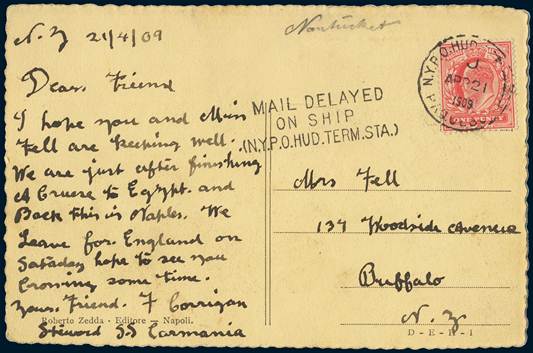 N.Y 21/4/09
Dear Friend
I hope you and Miss
Fell are keeping well.
We are just after finishing
A Cruese to Egypt. and
Back this is Naples. We
Leave for England on
Sataday hope to see you
Crowing some time.
Yours. Friend. F Corrigan
Steword S.S Carmania
Roberto Zedda - Editore - Napoli.
Nantucket
MAIL DELAYED
ON SHIP
(N.Y.P.O.HUD.TERM.STA.)
N.Y.P.O.HUD.
APR 21
1909
ONE PENNY
Mrs Fell
137 Woodside Avenue
Buffalo
N.Y
D-E-R-I